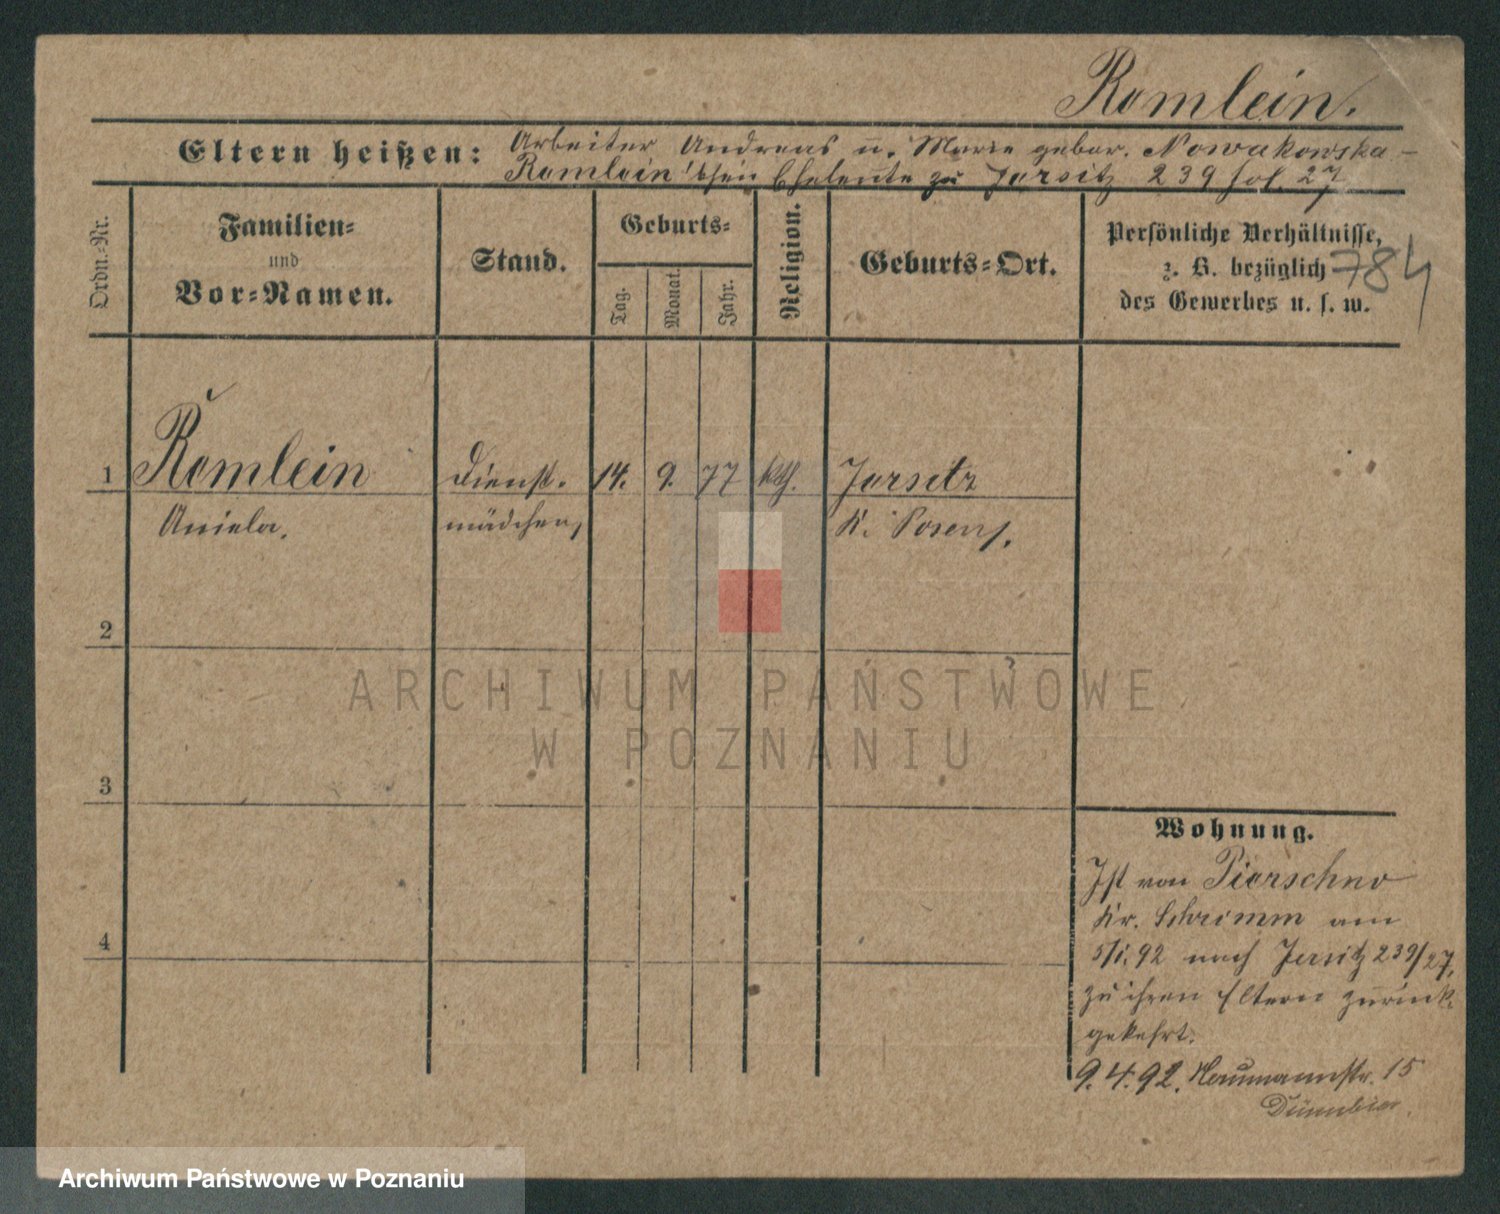 Romlein.
Eltern heißen: Arbeiter Andreas u. Marie gebor. Nowakowska-
Romlein'schen Eheleute zu Jersitz 239 fol. 27
Ordn.-Nr.
Familien-
und
Vor-Namen.
Stand.
Geburts-
Tag.
Monat.
Jahr.
Religion.
Geburts-Ort.
Persönliche Verhältnisse,
z. B. bezüglich
des Gewerbes u. s. w.
784
1 Romlein Dienst- 14. 9. 77 kth. Jersitz
Aniela. mädchen, K. Posen.
2
3
4
Wohnung.
Ist von Pierschno
Kr. Schrimm am
5/1. 92 nach Jersitz 239/27.
zu ihren Eltern zurück-
gekehrt.
9.4.92. Naumannstr. 15
Dünnbier.
ARCHIWUM PAŃSTWOWE
W POZNANIU
Archiwum Państwowe w Poznaniu